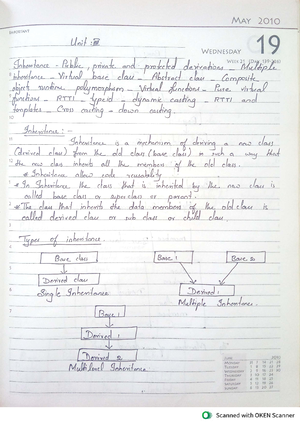 MAY 2010
Unit : III
WEDNESDAY 19
Inheritance - Public, private and protected derivations - Multiple
Inheritance - Virtual base class - Abstract class - Composite
object runtime polymorphism - Virtual functions - Pure virtual
functions - RTTI - Typeid - dynamic casting - RTTI and
templates - Cross casting - down casting.
Inheritance :-
Inheritance is a mechanism of deriving a new class
(derived class) from the old class (base class) in such a way that
the new class inherits all the members of the old class.
* Inheritance allow code reusability
* In Inheritance the class that is inherited by the new class is
called base class or superclass or parent.
* The class that inherits the data members of the old class is
called derived class or sub class or child class.
Types of inheritance.
Base class
Base 1
Base 2
Derived class
Derived 1
Single Inheritance
Multiple Inheritance.
Base 1
Derived 1
Derived 2
Multilevel Inheritance
Scanned with OKEN Scanner